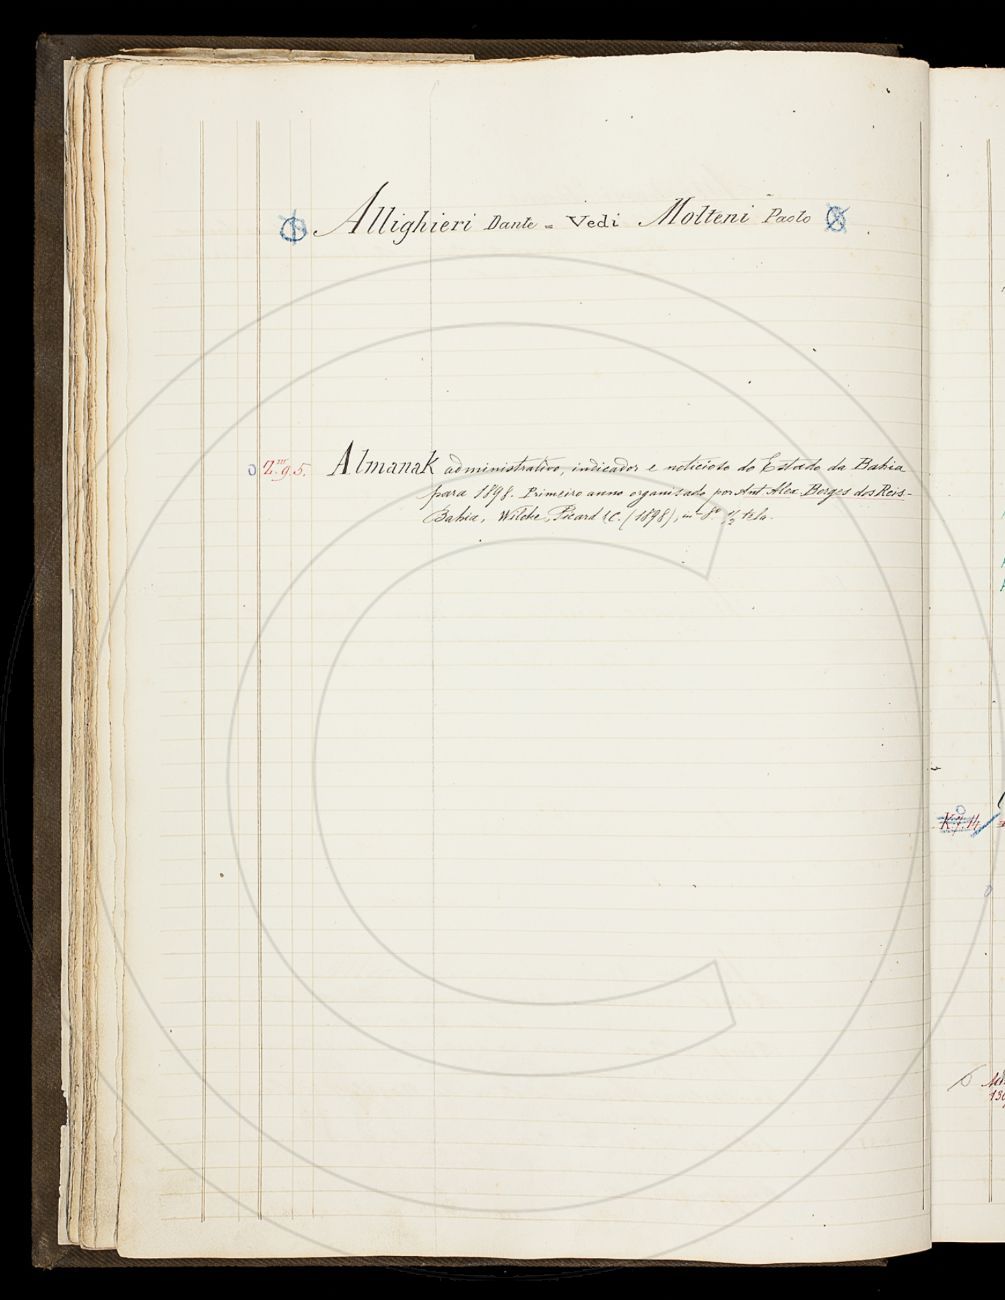 Allighieri Dante = Vedi Molteni Paolo
Z.III g. 5. Almanak administrativo, indicador e noticioso do Estado da Bahia
para 1898. Primeiro anno organisado por Ant. Alex. Borges dos Reis -
Bahia, Wilcke, Picard & C. (1898), in-8° 1/2 tela.
K.7.14